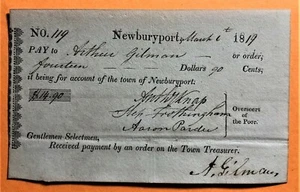 No. 119 Newburyport, March 6th 1819
PAY to Arthur Gilman or order;
fourteen Dollars 90 Cents;
it being for account of the town of Newburyport:
$14.90
Knap
Step Frothingham
Aaron Pardee
Overseers of the Poor.
Gentlemen Selectmen,
Received payment by an order on the Town Treasurer.
A. Gilman